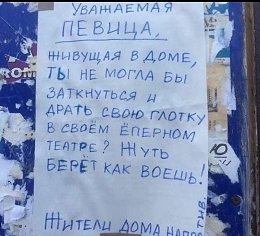 УВАЖАЕМАЯ
ПЕВИЦА,
ЖИВУЩАЯ В ДОМЕ,
ТЫ НЕ МОГЛА БЫ
ЗАТКНУТЬСЯ И
ДРАТЬ СВОЮ ГЛОТКУ
В СВОЁМ ЁПЕРНОМ
ТЕАТРЕ? ЖУТЬ
БЕРЁТ КАК ВОЕШЬ!
ЖИТЕЛИ ДОМА НАПРОТИВ.